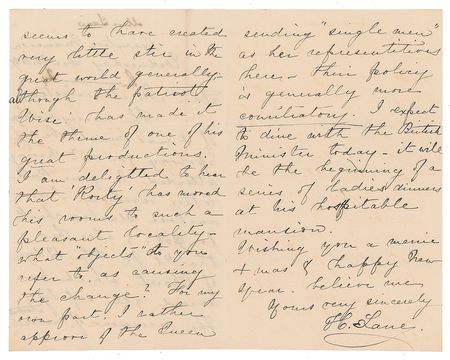 seems to have created
very little stir in the
great world generally-
although the patriot
'Wise' has made it
the theme of one of his
great productions.
I am delighted to hear
that 'Rorty' has moved
his rooms to such a
pleasant locality-
what "objects" do you
refer to, as causing
the change? For my
own part, I rather
approve of the Queen
sending "single men"
as her representatives
here - their policy
is generally more
conciliatory. I expect
to dine with the British
Minister today - it will
be the beginning of a
series of ladies dinners
at his hospitable
mansion.
Wishing you a merrie
+mas & happy New
Year. believe me
Yours very sincerely
H. Lane.